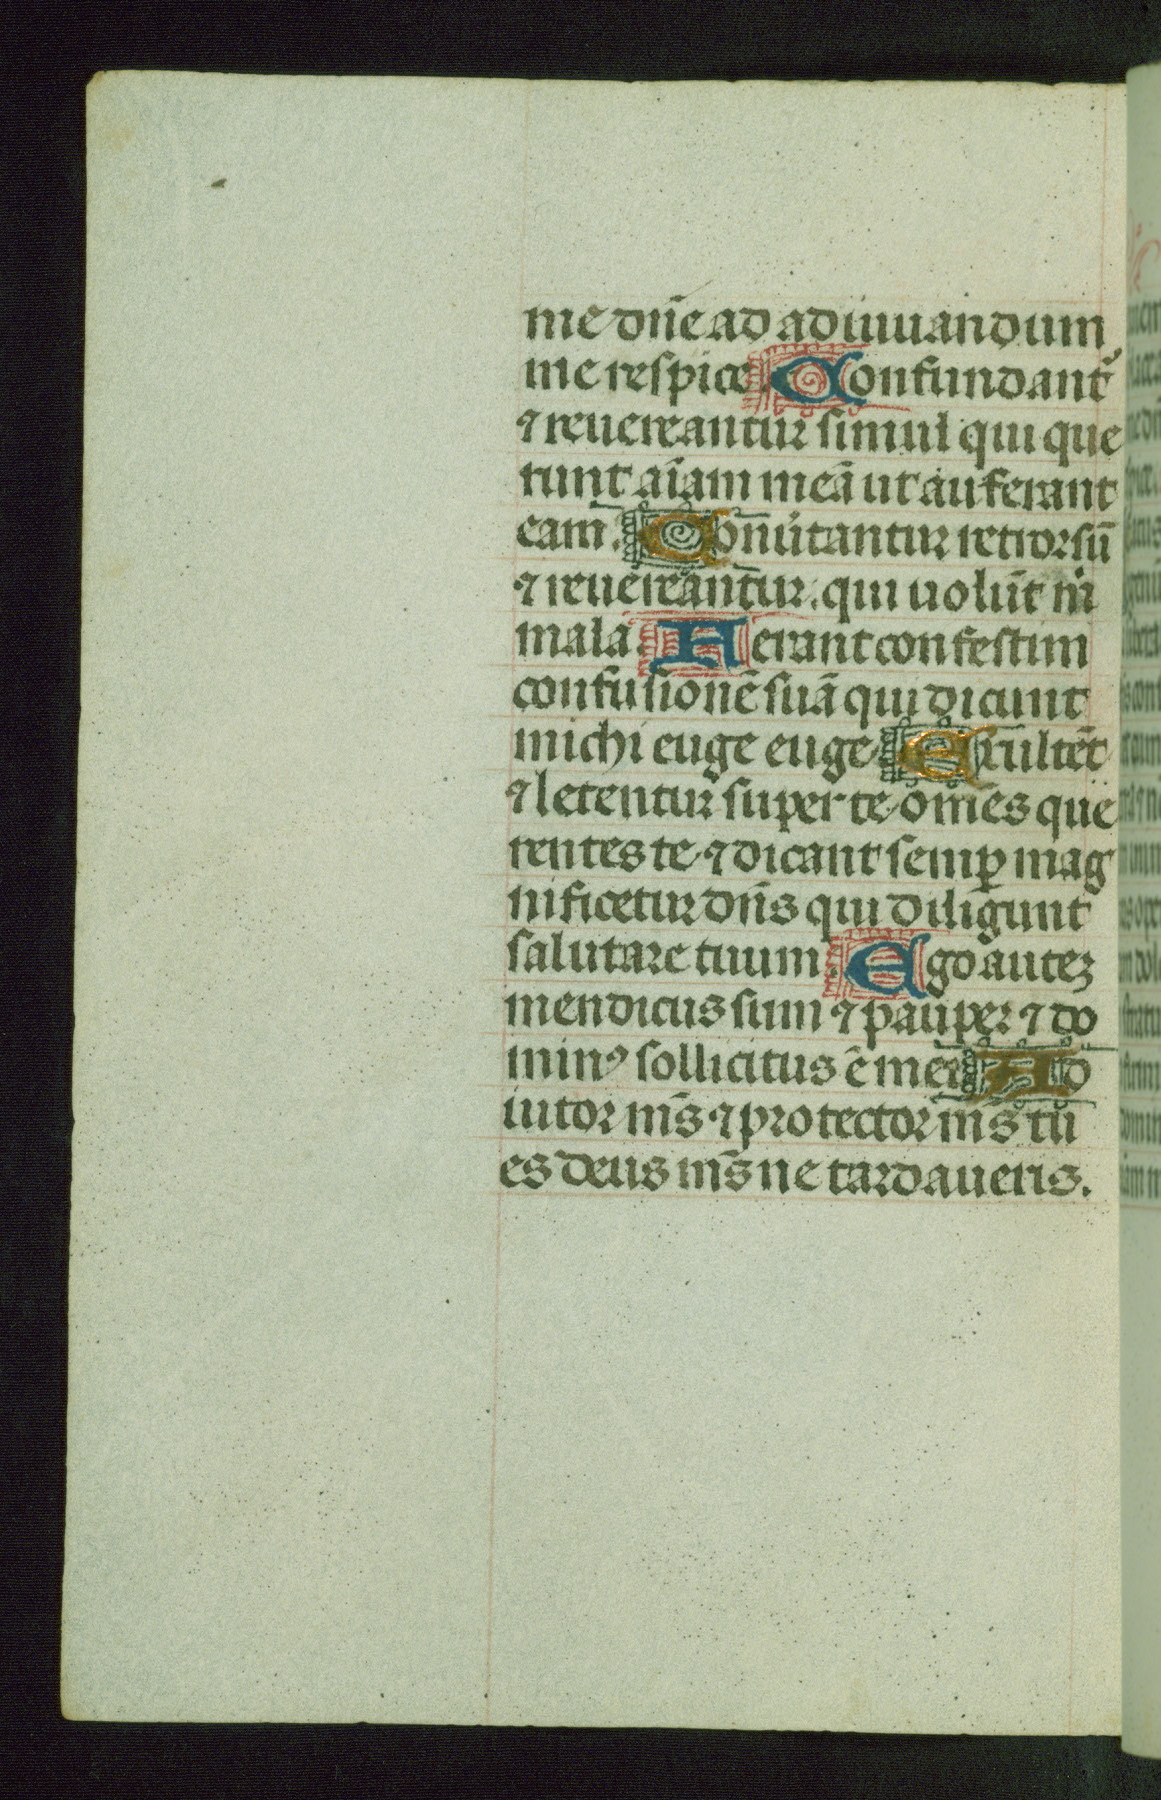 me dn̄e ad adiuuandum
me respice. Confundant᷑
⁊ reuereantur simul qui que
runt aīam meā ut auferant
eam. Conūtantur retrorsū
⁊ reuereantur. qui uolūt m̄
mala. Ferant confestim
confusionē suā qui dicunt
michi euge euge. Exultēt
⁊ letentur super te om̄es que
rentes te. ⁊ dicant semꝑ mag
nificetur dn̄s qui diligunt
salutare tuum. Ego autez
mendicus sum ⁊ pauper ⁊ do
minꝰ sollicitus ē mei. Ad
iutor m̄s ⁊ protector m̄s tu
es deus m̄s ne tardaueris.